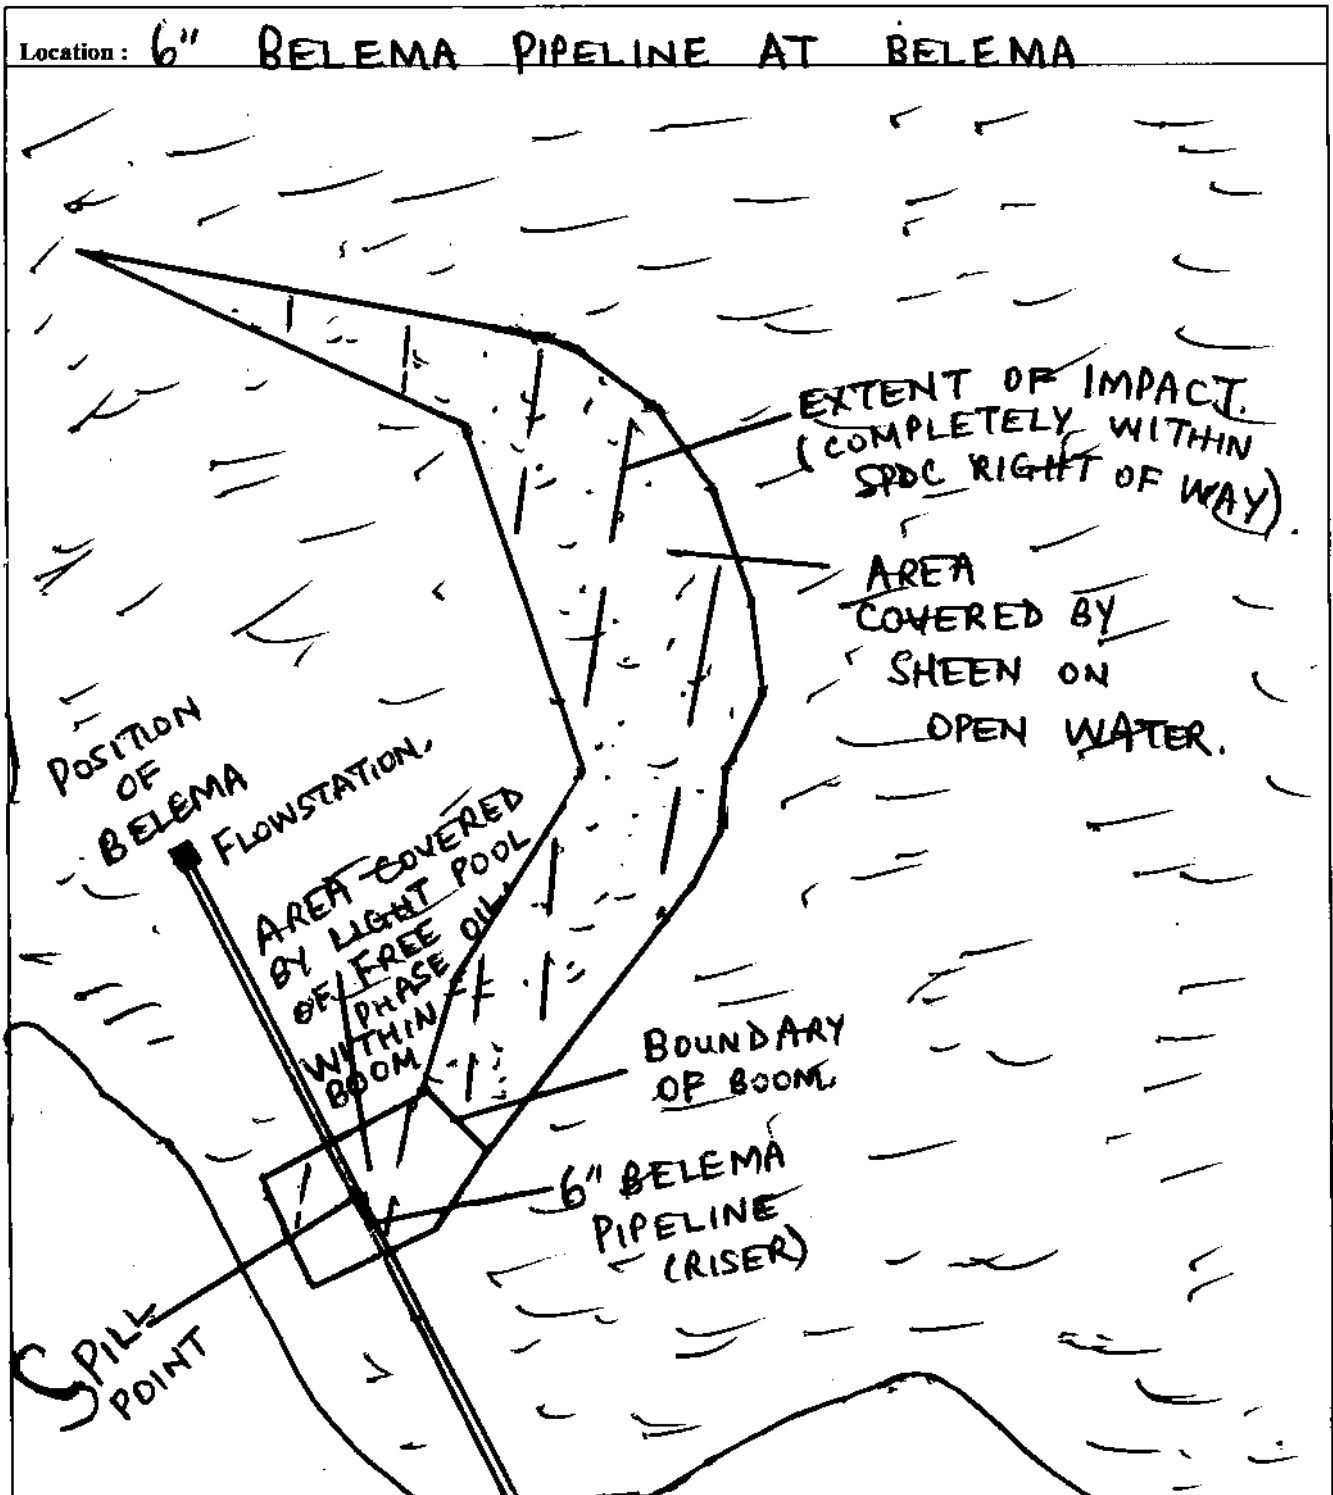 Location : 6" BELEMA PIPELINE AT BELEMA
EXTENT OF IMPACT.
(COMPLETELY WITHIN
SPDC RIGHT OF WAY).
AREA
COVERED BY
SHEEN ON
OPEN WATER.
POSITION
OF
BELEMA
FLOWSTATION.
AREA COVERED
BY LIGHT POOL
OF FREE OIL.
PHASE
WITHIN
BOOM
BOUNDARY
OF BOOM.
6" BELEMA
PIPELINE
(RISER)
SPILL
POINT